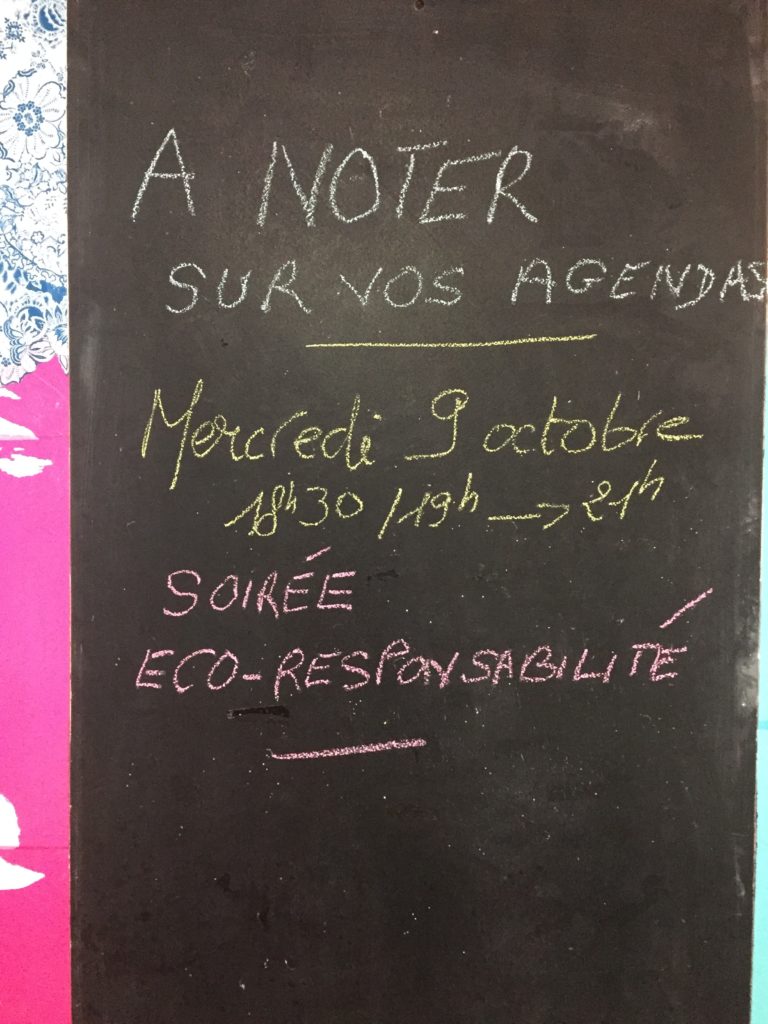 A NOTER
SUR VOS AGENDAS
Mercredi 9 octobre
18h30 /19h → 21h
SOIRÉE
ECO-RESPONSABILITÉ